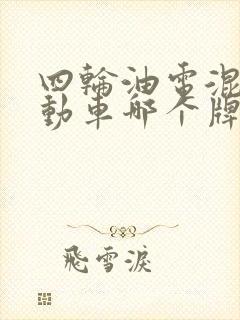 四輪油電混
動車哪个牌
飛雪淚